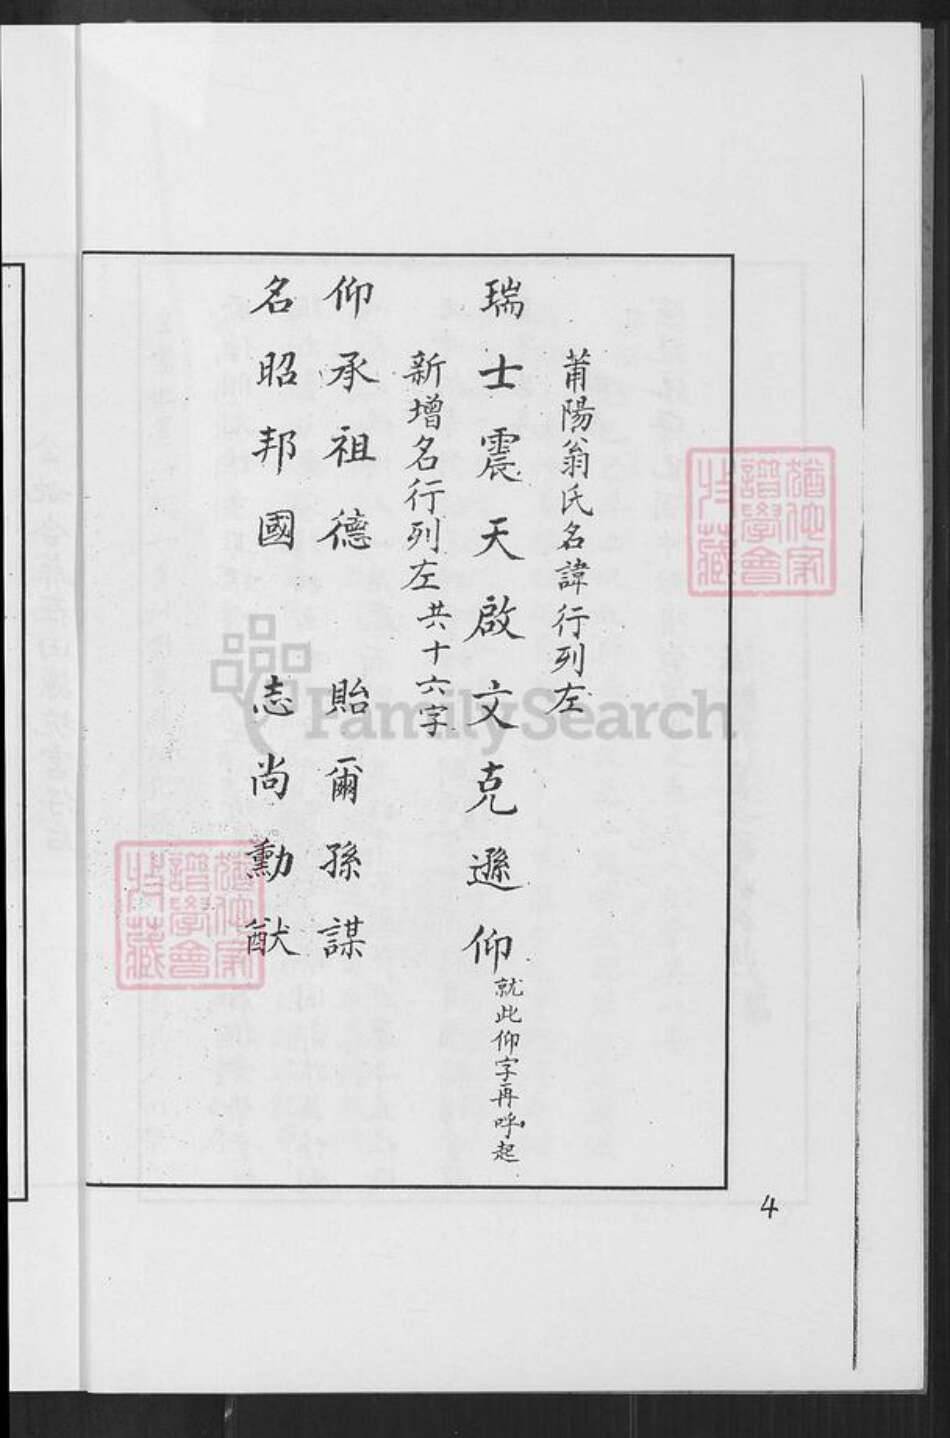 莆陽翁氏名諱行列左
瑞士震天啟文克遜仰就此仰字再呼起
新增名行列左共十六字
仰承祖德 貽爾孫謀
名昭邦國 志尚勳猷
4
FamilySearch
譜學會
收藏
譜學會
收藏